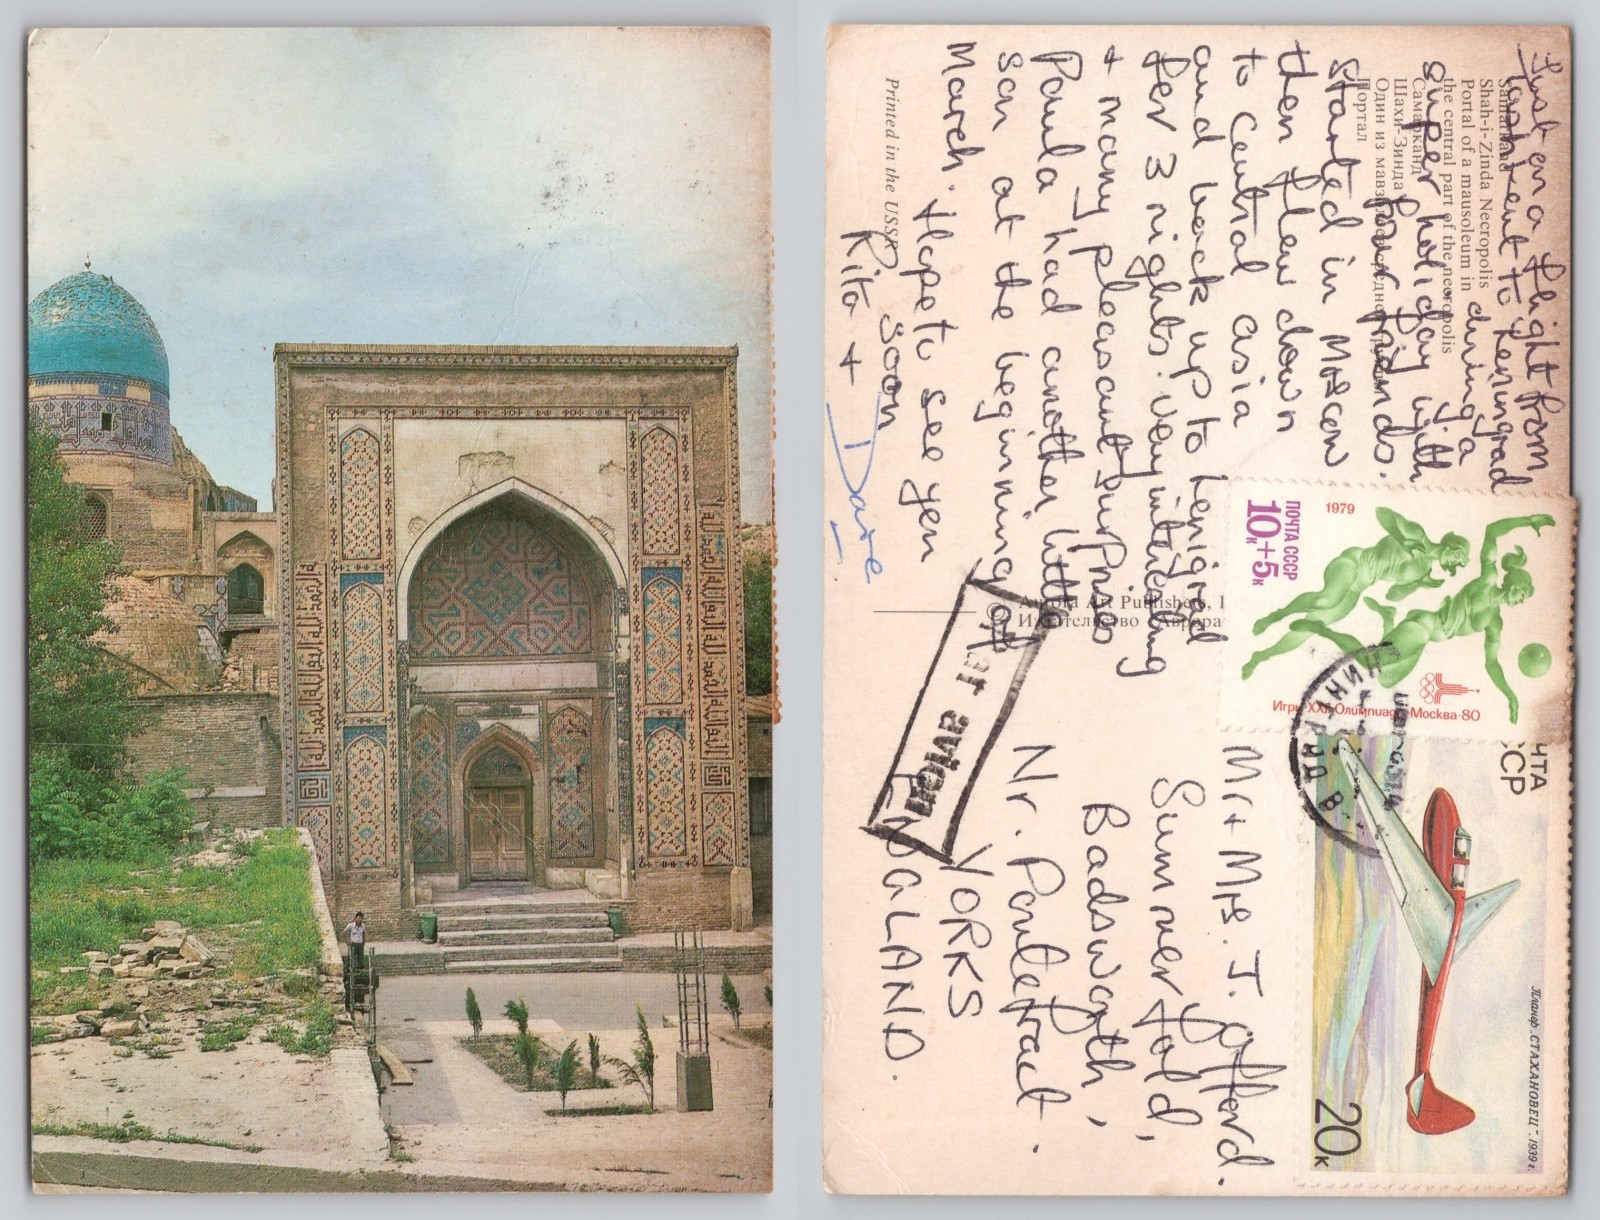 Samarkand
Shah-i-Zinda Necropolis
Portal of a mausoleum in
the central part of the necropolis
Самарканд
Шахи-Зинда
Один из мавзолеев средней группы
Портал
Printed in the USSR
Aurora Art Publishers, 
Издательство "Аврора"
Just on a flight from
Tashkent to Leningrad
during a
super holiday with
four friends.
Started in Moscow
then flew down
to Central asia
and back up to Lenigrad
for 3 nights. Very interesting
+ many pleasant surprises
Paula had another little
son at the beginning of
March. Hope to see you
soon
Rita +
Dave
par avion
Mr + Mrs. J. Offord.
Sunnerfold,
Badsworth,
Nr. Pontefract.
YORKS
ENGLAND.
1979
ПОЧТА СССР
10к+5к
Игры XXII Олимпиады Москва·80
ЧТА
ССР
Планер „СТАХАНОВЕЦ“. 1939 г.
20к